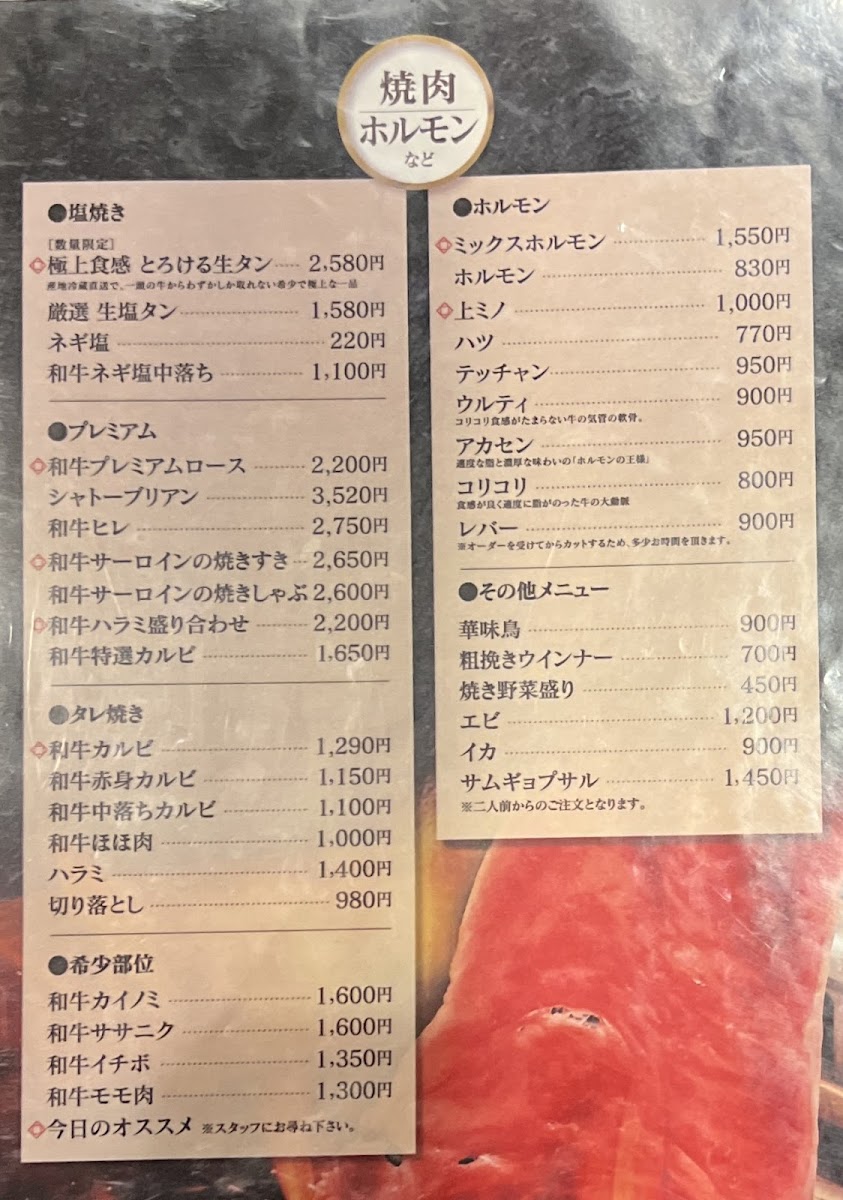 焼肉
ホルモン
など
●塩焼き
[数量限定]
極上食感 とろける生タン 2,580円
産地冷蔵直送で、一頭の牛からわずかしか取れない希少で極上な一品
厳選 生塩タン 1,580円
ネギ塩 220円
和牛ネギ塩中落ち 1,100円
●プレミアム
和牛プレミアムロース 2,200円
シャトーブリアン 3,520円
和牛ヒレ 2,750円
和牛サーロインの焼きすき 2,650円
和牛サーロインの焼きしゃぶ 2,600円
和牛ハラミ盛り合わせ 2,200円
和牛特選カルビ 1,650円
●タレ焼き
和牛カルビ 1,290円
和牛赤身カルビ 1,150円
和牛中落ちカルビ 1,100円
和牛ほほ肉 1,000円
ハラミ 1,400円
切り落とし 980円
●希少部位
和牛カイノミ 1,600円
和牛ササニク 1,600円
和牛イチボ 1,350円
和牛モモ肉 1,300円
今日のオススメ ※スタッフにお尋ね下さい。
●ホルモン
ミックスホルモン 1,550円
ホルモン 830円
上ミノ 1,000円
ハツ 770円
テッチャン 950円
ウルティ 900円
コリコリ食感がたまらない牛の気管の軟骨。
アカセン 950円
適度な脂と濃厚な味わいの「ホルモンの王様」
コリコリ 800円
食感が良く適度に脂がのった牛の大動脈
レバー 900円
※オーダーを受けてからカットするため、多少お時間を頂きます。
●その他メニュー
華味鳥 900円
粗挽きウインナー 700円
焼き野菜盛り 450円
エビ 1,200円
イカ 900円
サムギョプサル 1,450円
※二人前からのご注文となります。